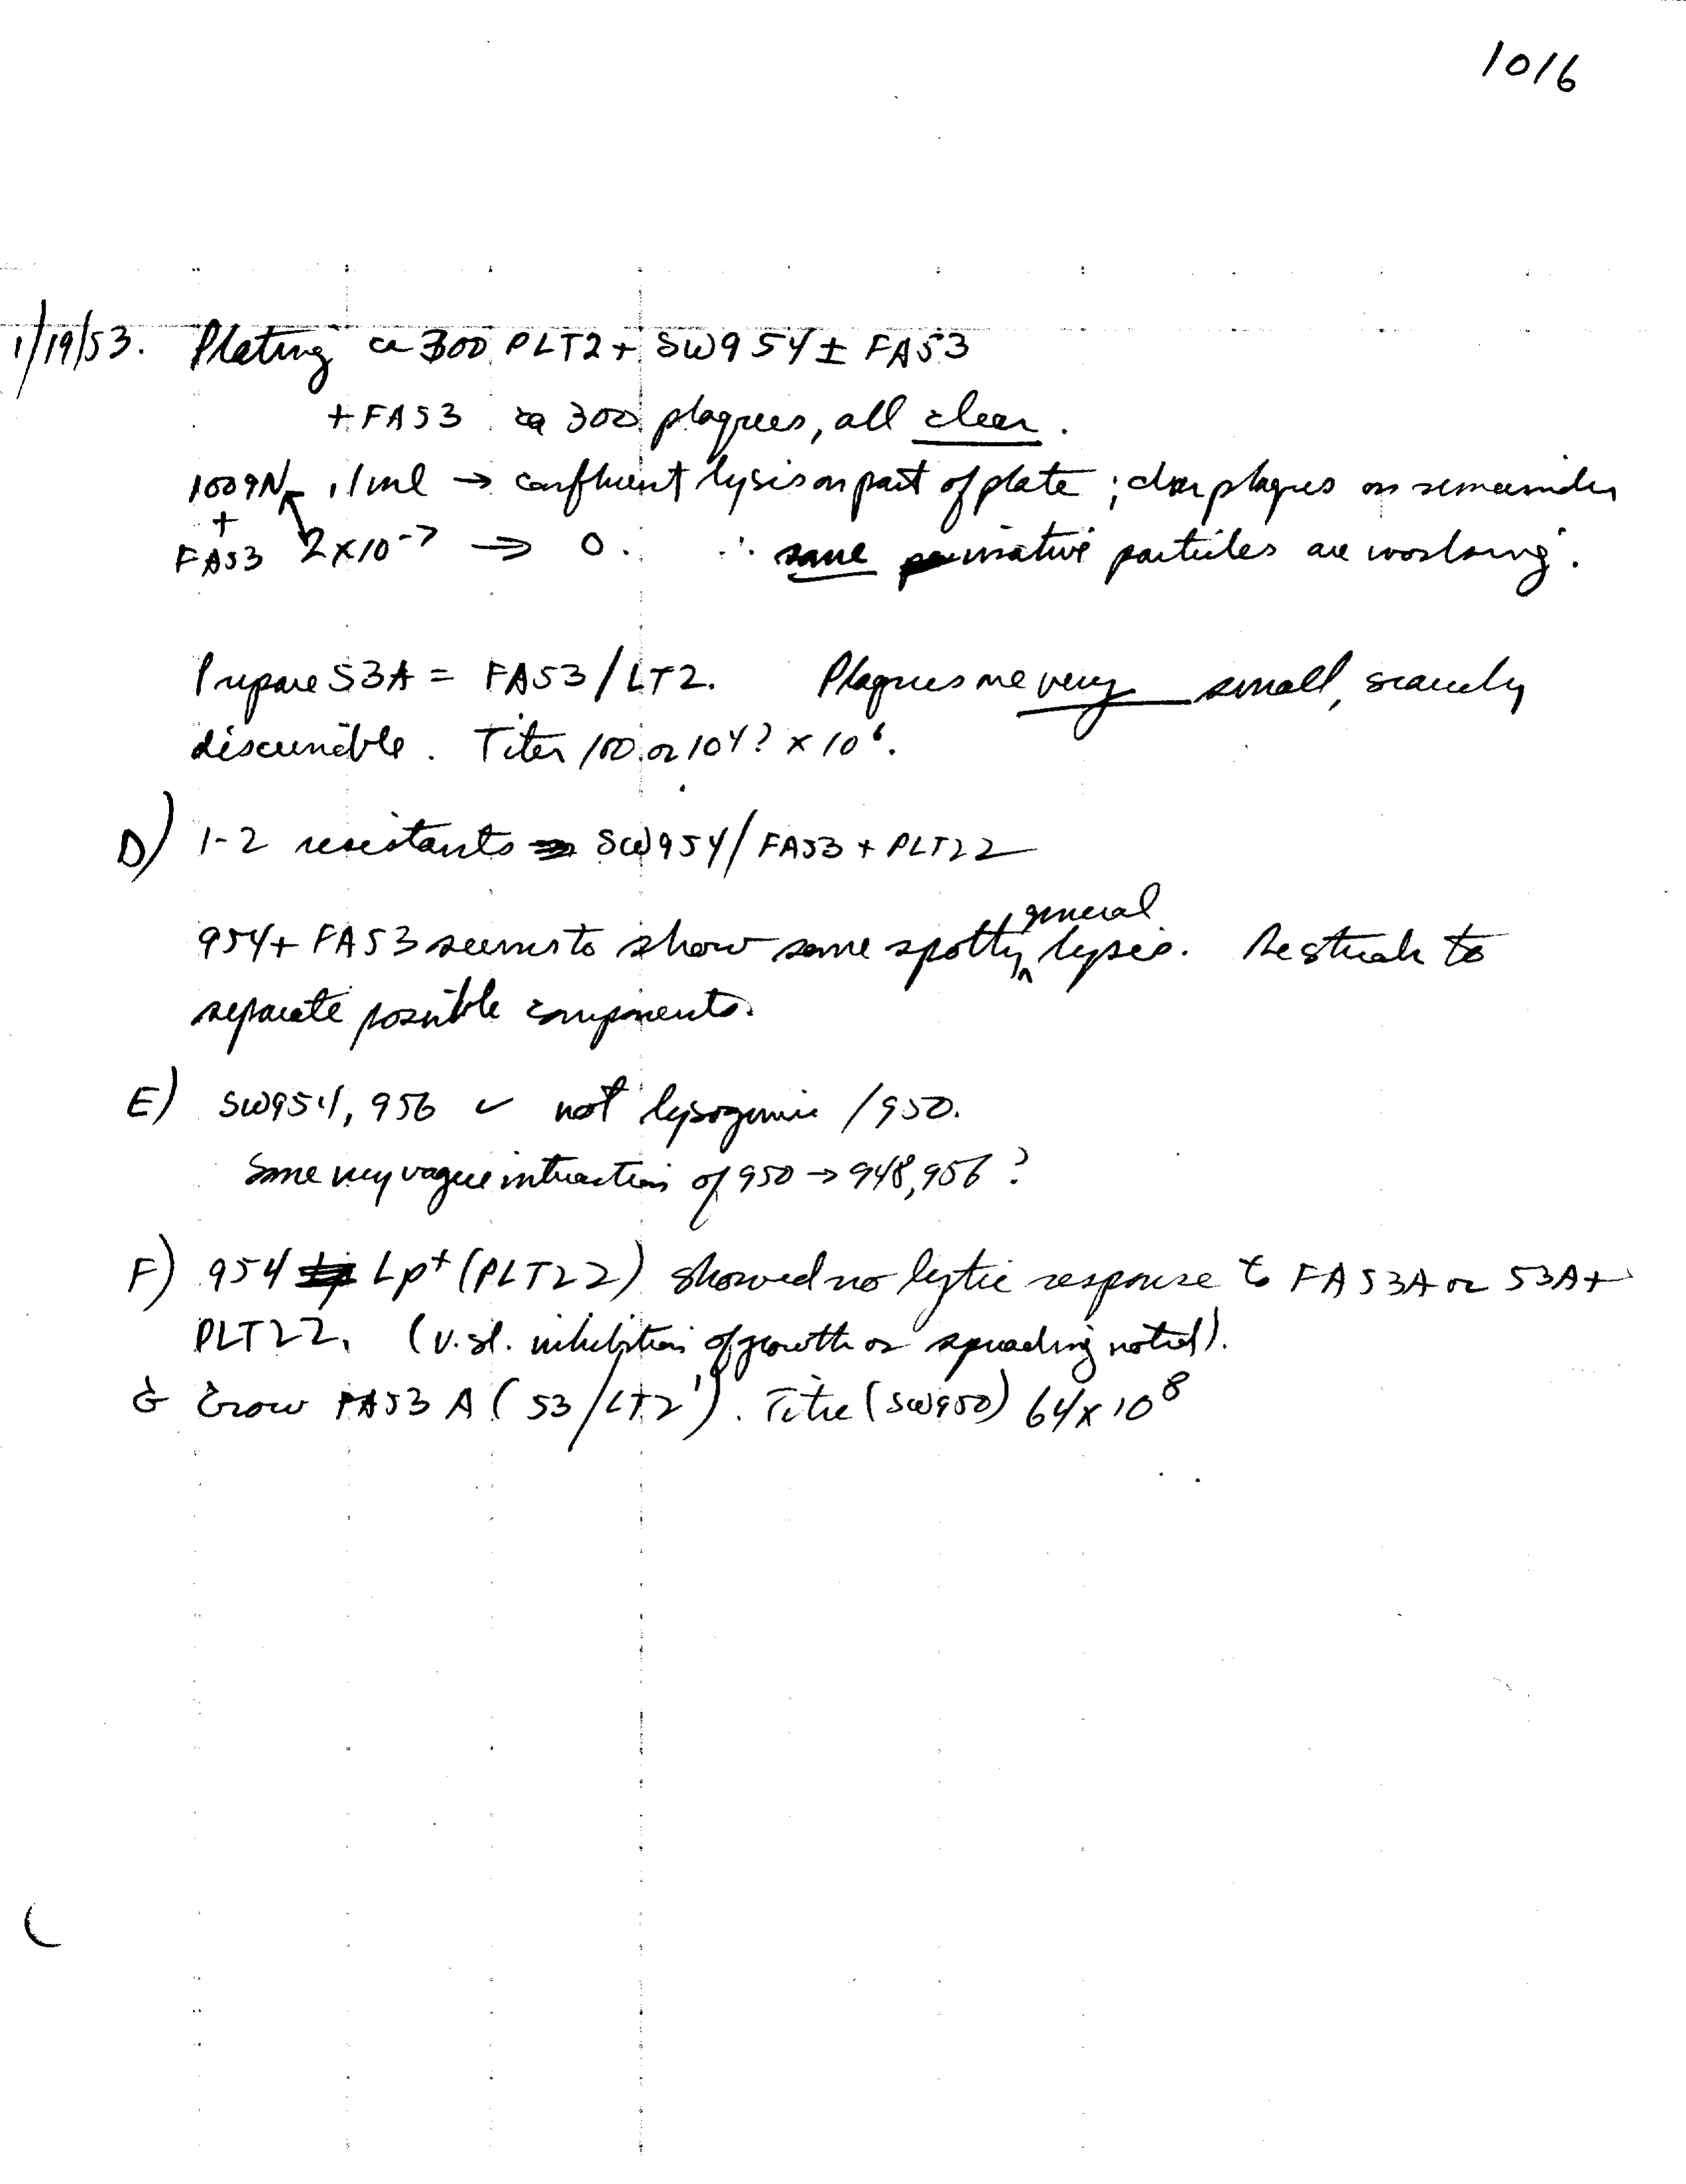 1016
1/19/53. Plating ca 300 PLT2 + SW954 ± FA53
+ FA53 ca 300 plaques, all clear.
1009N .1ml → confluent lysis on part of plate; clear plaques on remainder
+
FA53 2x10⁻⁷ → 0. ∴ same particles are working.
Prepare 53A = FA53/LT2. Plaques are very small, scarcely
discernible. Titer 100 or 104? x 10⁶.
D) 1-2 resistants SW954/FA53 + PLT22
954 + FA53 seems to show some spotty general lysis. Restreak to
separate possible components.
E) SW954, 956 ✓ not lysogenic /950.
Some very vague interaction of 950 → 948, 956?
F) 954 Lp⁺ (PLT22) showed no lytic response to FA53A or 53A +
PLT22. (v. sl. inhibition of growth or spreading noted).
G Grow FA53A (53/LT2'). Titre (SW950) 64 x 10⁸